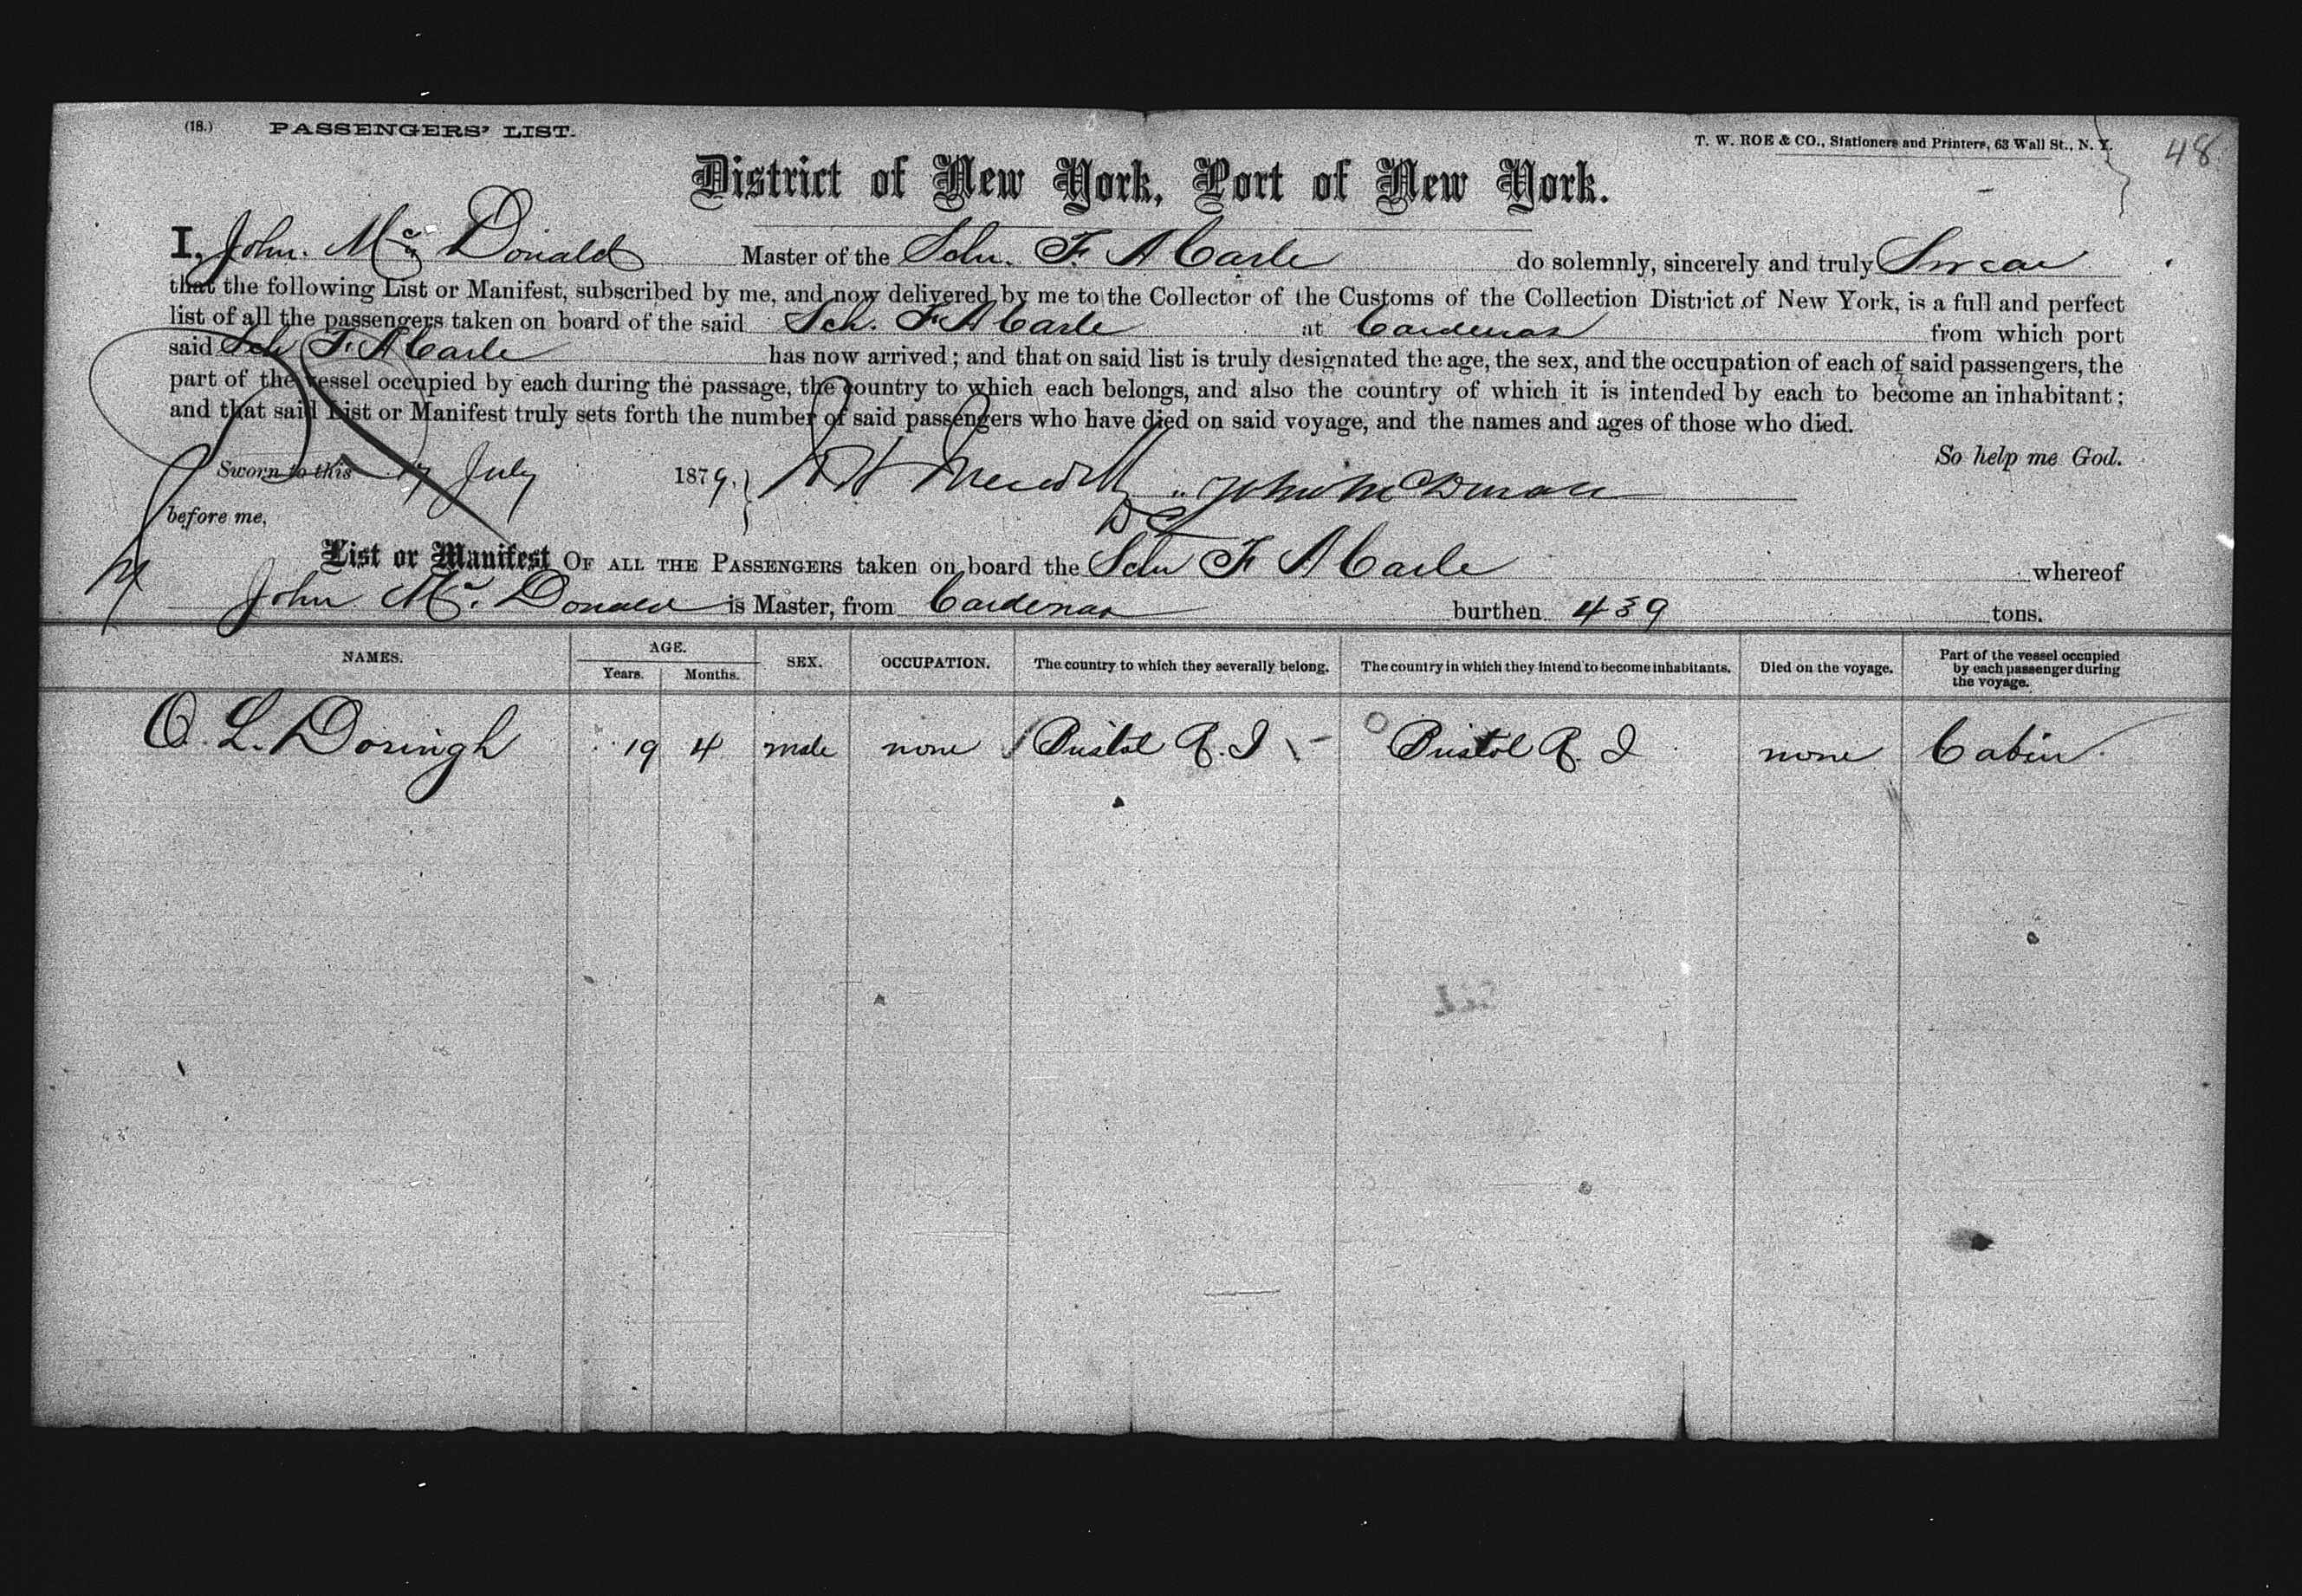 (18.) PASSENGERS' LIST. T. W. ROE & CO., Stationers and Printers, 63 Wall St., N. Y. 48
District of New York, Port of New York.
I, John. Mc Donald Master of the Schr. F. A Carle do solemnly, sincerely and truly Swear
that the following List or Manifest, subscribed by me, and now delivered by me to the Collector of the Customs of the Collection District of New York, is a full and perfect
list of all the passengers taken on board of the said Sch. F A Carle at Cardenas from which port
said Sch F. A Carle has now arrived; and that on said list is truly designated the age, the sex, and the occupation of each of said passengers, the
part of the vessel occupied by each during the passage, the country to which each belongs, and also the country of which it is intended by each to become an inhabitant;
and that said List or Manifest truly sets forth the number of said passengers who have died on said voyage, and the names and ages of those who died.
So help me God.
Sworn to this 17 July 1879. Meredith John McDonald
before me, D C
List or Manifest OF ALL THE PASSENGERS taken on board the Schr F A Carle whereof
John Mc. Donald is Master, from Cardenas burthen 439 tons.
NAMES. AGE. Years. Months. SEX. OCCUPATION. The country to which they severally belong. The country in which they intend to become inhabitants. Died on the voyage. Part of the vessel occupied by each passenger during the voyage.
O. L. Doringh 19 4 male none Bristol R. I Bristol R. I none Cabin